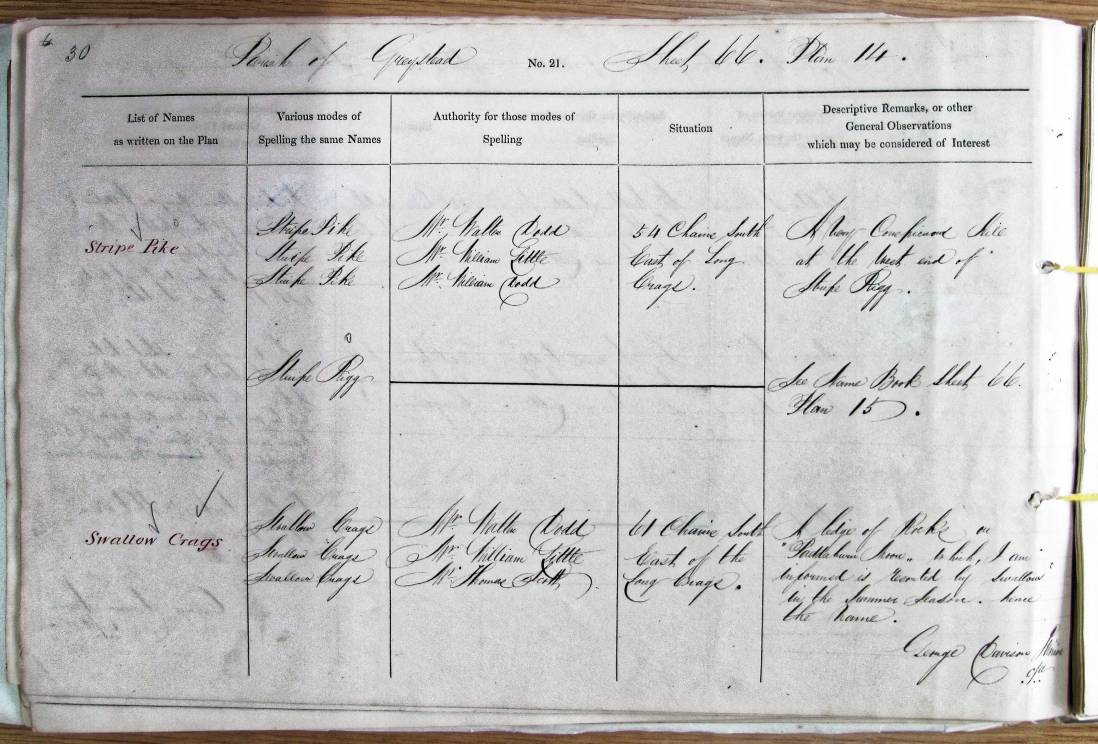 30
Parish of Greystead No. 21. Sheet 66. Plan 14.
List of Names
as written on the Plan
Various modes of
Spelling the same Names
Authority for those modes of
Spelling
Situation
Descriptive Remarks, or other
General Observations
which may be considered of Interest
Stripe Pike
Stripe Pike
Stripe Pike
Stripe Pike
Mr. Walter Dodd
Mr. William Little
Mr. William Dodd
54 Chains South
East of Long
Crags.
A very Conspicuous hill
at the West end of
Stripe Rigg.
Stripe Rigg
See Name Book Sheet 66.
Plan 15.
Swallow Crags
Swallow Crags
Swallow Crags
Swallow Crags
Mr. Walter Dodd
Mr. William Little
Mr. Thomas Scott
61 Chains South
East of the
Long Crags.
A ledge of Rocks on
Moor" Which, I am
informed is resorted by Swallows
in the Summer Season. hence
the name.
George Davison